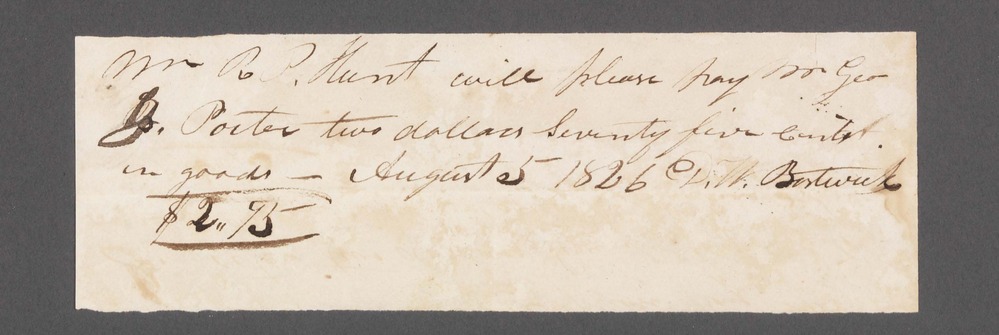 Mr R P. Hunt will please pay Mr Geo
B. Porter two dollars Seventy five Cents.
in goods — August 5 1826 D. W. Bostwick
$2,,75